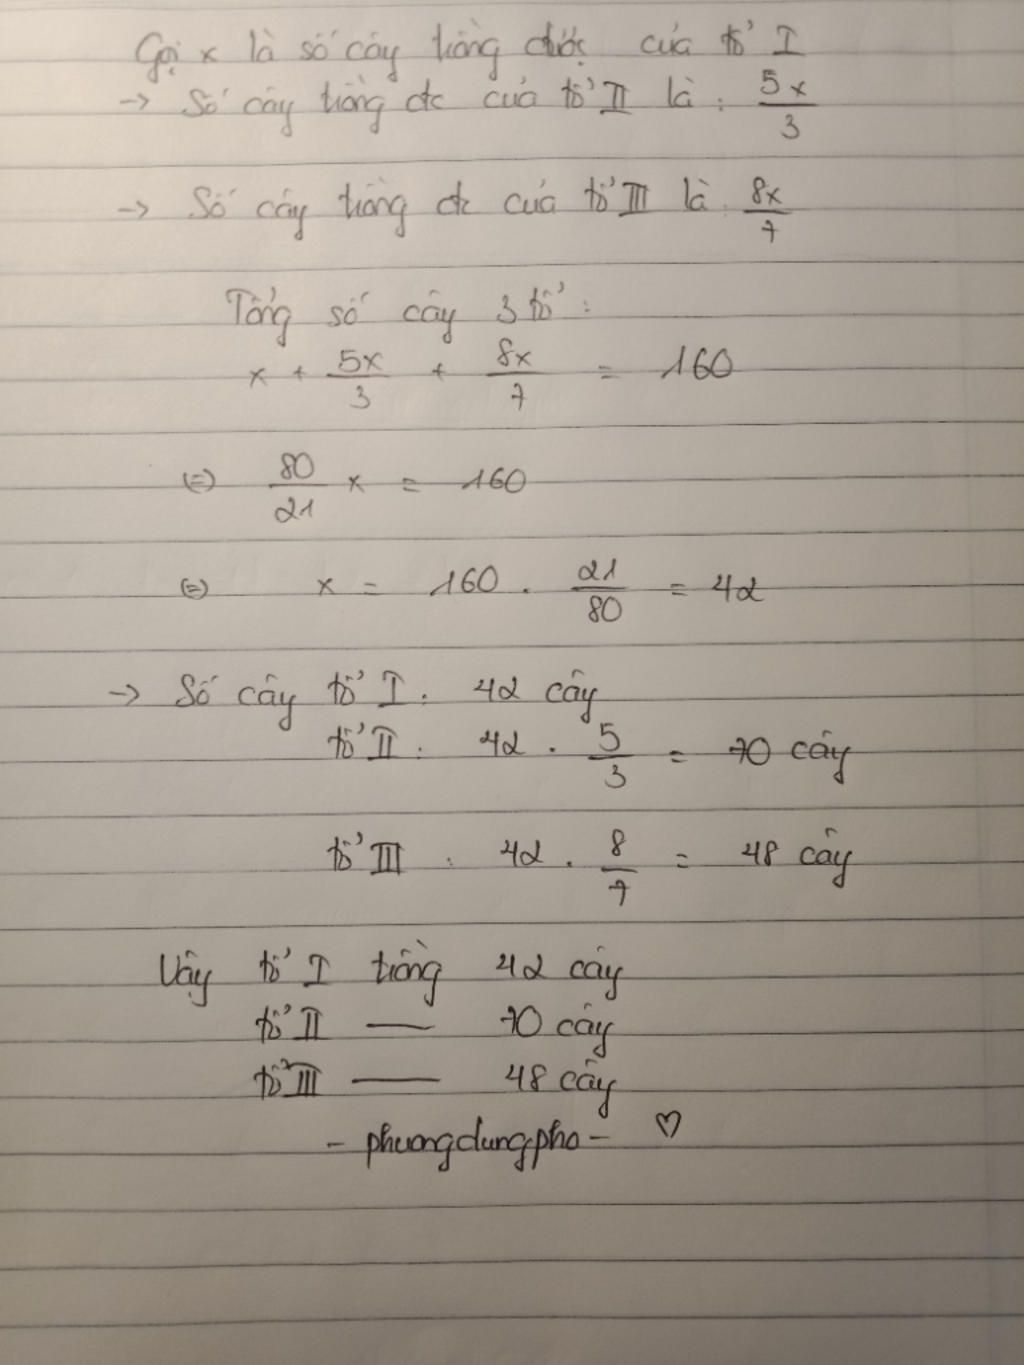 Gọi x là số cây trồng được của tổ I
→ Số cây trồng đc của tổ II là: 5x/3
→ Số cây trồng đc của tổ III là: 8x/7
Tổng số cây 3 tổ:
x + 5x/3 + 8x/7 = 160
(=) 80/21 x = 160
(=) x = 160 . 21/80 = 42
→ Số cây tổ I: 42 cây
tổ II: 42 . 5/3 = 70 cây
tổ III: 42 . 8/7 = 48 cây
Vậy tổ I trồng 42 cây
tổ II — 70 cây
tổ III — 48 cây
- phuongdungpho - ♡